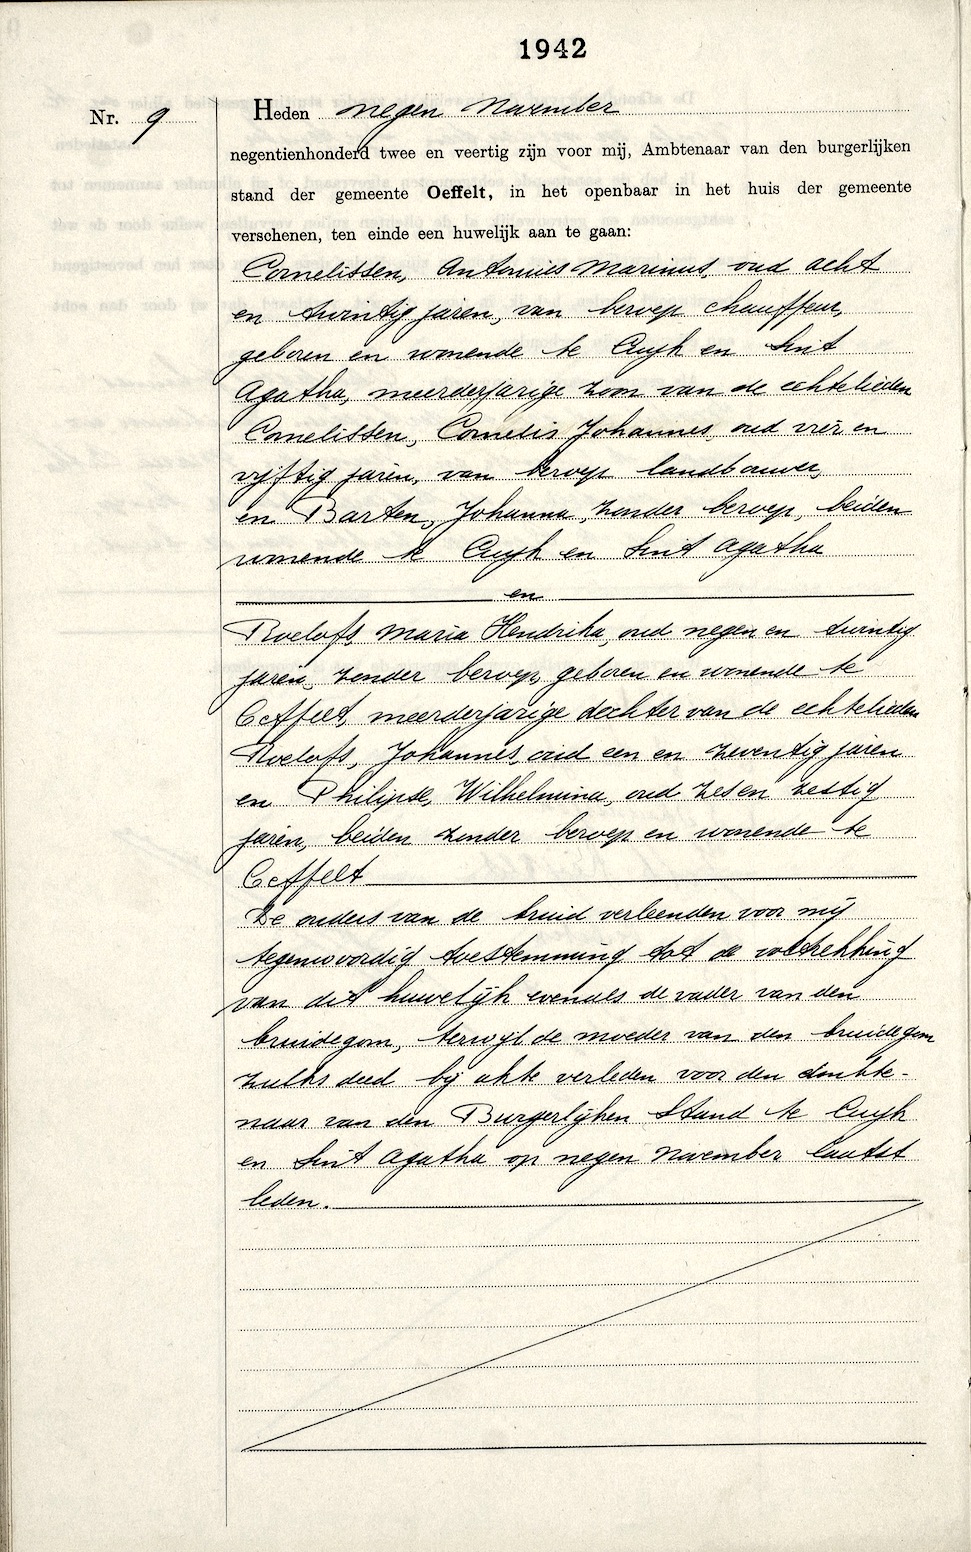 1942
Nr. 9
Heden negen November
negentienhonderd twee en veertig zijn voor mij, Ambtenaar van den burgerlijken
stand der gemeente Oeffelt, in het openbaar in het huis der gemeente
verschenen, ten einde een huwelijk aan te gaan:
Cornelissen, Antonius Marinus, oud acht
en twintig jaren, van beroep chauffeur,
geboren en wonende te Cuyk en Sint
Agatha, meerderjarige zoon van de echtelieden
Cornelissen, Cornelis Johannes, oud vier en
vijftig jaren, van beroep landbouwer,
en Barten, Johanna, zonder beroep, beiden
wonende te Cuyk en Sint Agatha
en
Roelofs, Maria Hendrika, oud negen en twintig
jaren, zonder beroep, geboren en wonende te
Oeffelt, meerderjarige dochter van de echtelieden
Roelofs, Johannes, oud een en zeventig jaren
en Philipse, Wilhelmina, oud zes en zestig
jaren, beiden zonder beroep en wonende te
Oeffelt
De ouders van de bruid verleenden voor mij
tegenwoordig toestemming tot de voltrekking
van dit huwelijk evenals de vader van den
bruidegom, terwijl de moeder van den bruidegom
zulks deed bij akte verleden voor den Ambte-
naar van den Burgerlijken Stand te Cuyk
en Sint Agatha op negen November laatst
leden.